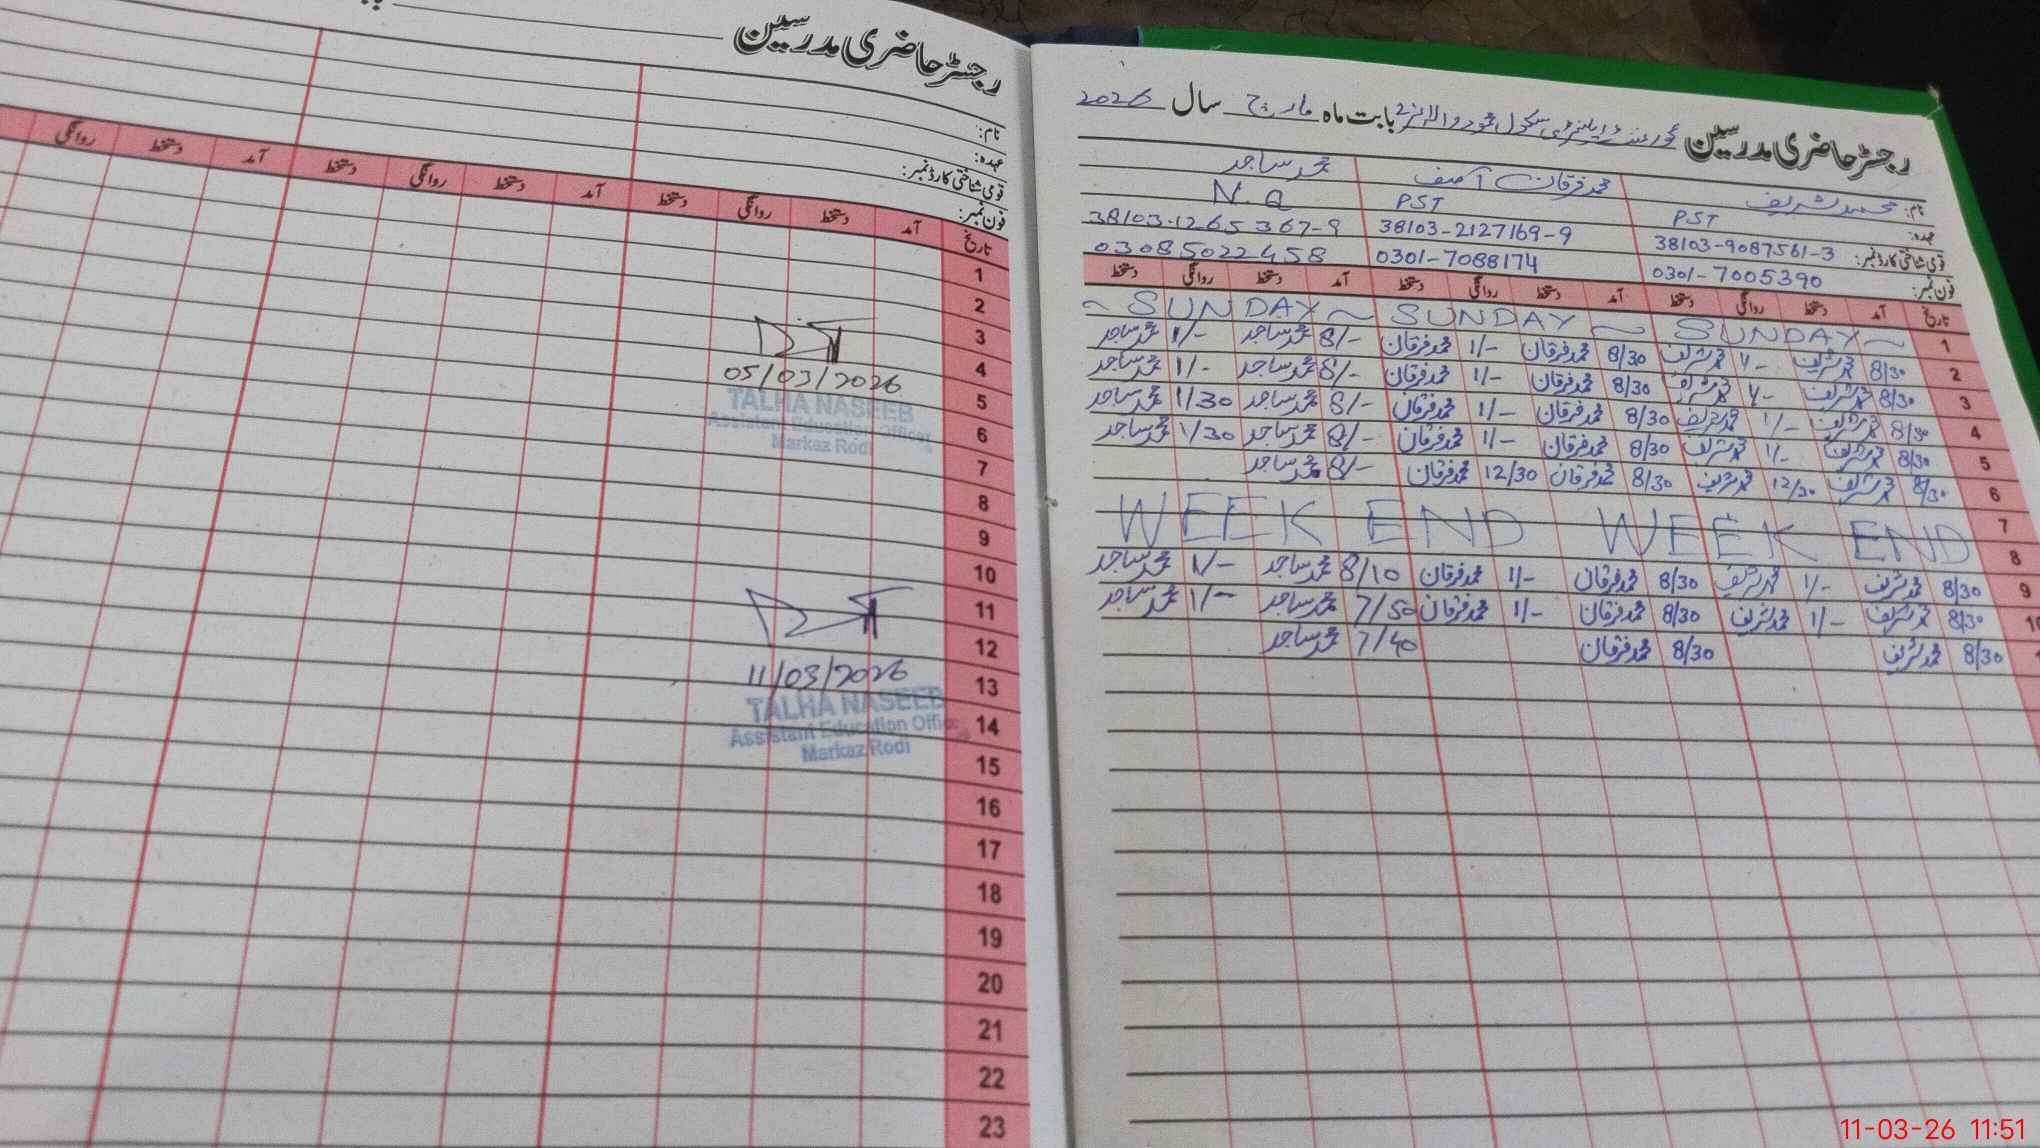 رجسٹر حاضری مدرسین
نام:
عہدہ:
قومی شناختی کارڈ نمبر:
فون نمبر:
تاریخ آمد دستخط روانگی دستخط آمد دستخط روانگی دستخط آمد دستخط روانگی
1
2
3
4
05/03/2026
5
TALHA NASEEB
Assistant Education Officer
6
Markaz Rodi
7
8
9
10
11
12
11/03/2026
13
TALHA NASEEB
14
Assistant Education Offic
Markaz Rodi
15
16
17
18
19
20
21
22
23
رجسٹر حاضری مدرسین گورنمنٹ ایلیمنٹری سکول بابت ماہ مارچ سال 2026
نام: محمد شریف محمد فرقان آصف محمد ساجد
عہدہ: PST PST N.Q
قومی شناختی کارڈ نمبر: 38103-9087561-3 38103-2127169-9 38103-1265367-9
فون نمبر: 0301-7005390 0301-7088174 03085022458
تاریخ آمد دستخط روانگی دستخط آمد دستخط روانگی دستخط آمد دستخط روانگی دستخط
1 ~ SUNDAY ~ SUNDAY ~ SUNDAY ~
2 8/30 محمد شریف 1/- محمد شریف 8/30 محمد فرقان 1/- محمد فرقان 8/- محمد ساجد 1/- محمد ساجد
3 8/30 محمد شریف 1/- محمد شریف 8/30 محمد فرقان 1/- محمد فرقان 8/- محمد ساجد 1/- محمد ساجد
4 8/30 محمد شریف 1/- محمد شریف 8/30 محمد فرقان 1/- محمد فرقان 8/- محمد ساجد 1/30 محمد ساجد
5 8/30 محمد شریف 1/- محمد شریف 8/30 محمد فرقان 1/- محمد فرقان 8/- محمد ساجد 1/30 محمد ساجد
6 8/30 محمد شریف 12/30 محمد شریف 8/30 محمد فرقان 12/30 محمد فرقان 8/- محمد ساجد
7
WEEK END WEEK END
8
9 8/30 محمد شریف 1/- محمد شریف 8/30 محمد فرقان 1/- محمد فرقان 8/10 محمد ساجد 1/- محمد ساجد
10 8/30 محمد شریف 1/- محمد شریف 8/30 محمد فرقان 1/- محمد فرقان 7/50 محمد ساجد 1/- محمد ساجد
8/30 محمد شریف 8/30 محمد فرقان 7/40 محمد ساجد
11-03-26 11:51